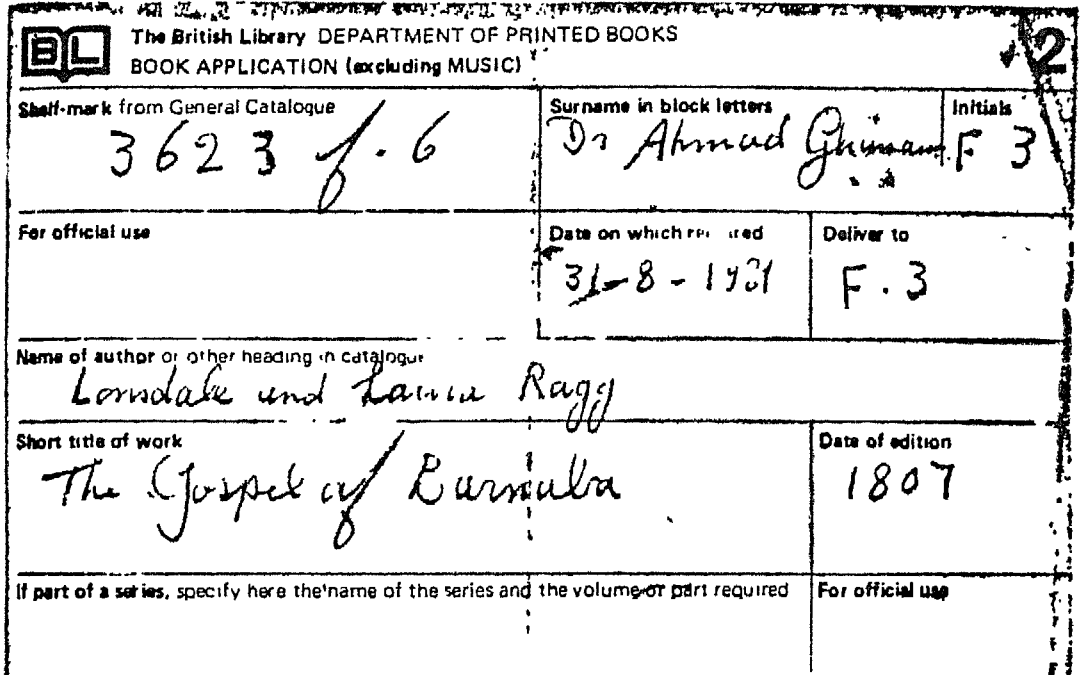 BL The British Library DEPARTMENT OF PRINTED BOOKS 2
BOOK APPLICATION (excluding MUSIC)
Shelf-mark from General Catalogue
3623 f. 6
Surname in block letters
Dr Ahmad
Initials
F 3
For official use
Date on which required
31-8-1981
Deliver to
F. 3
Name of author or other heading in catalogue
Lonsdale and Laura Ragg
Short title of work
The Gospel of Barnaba
Date of edition
1807
If part of a series, specify here the name of the series and the volume or part required
For official use